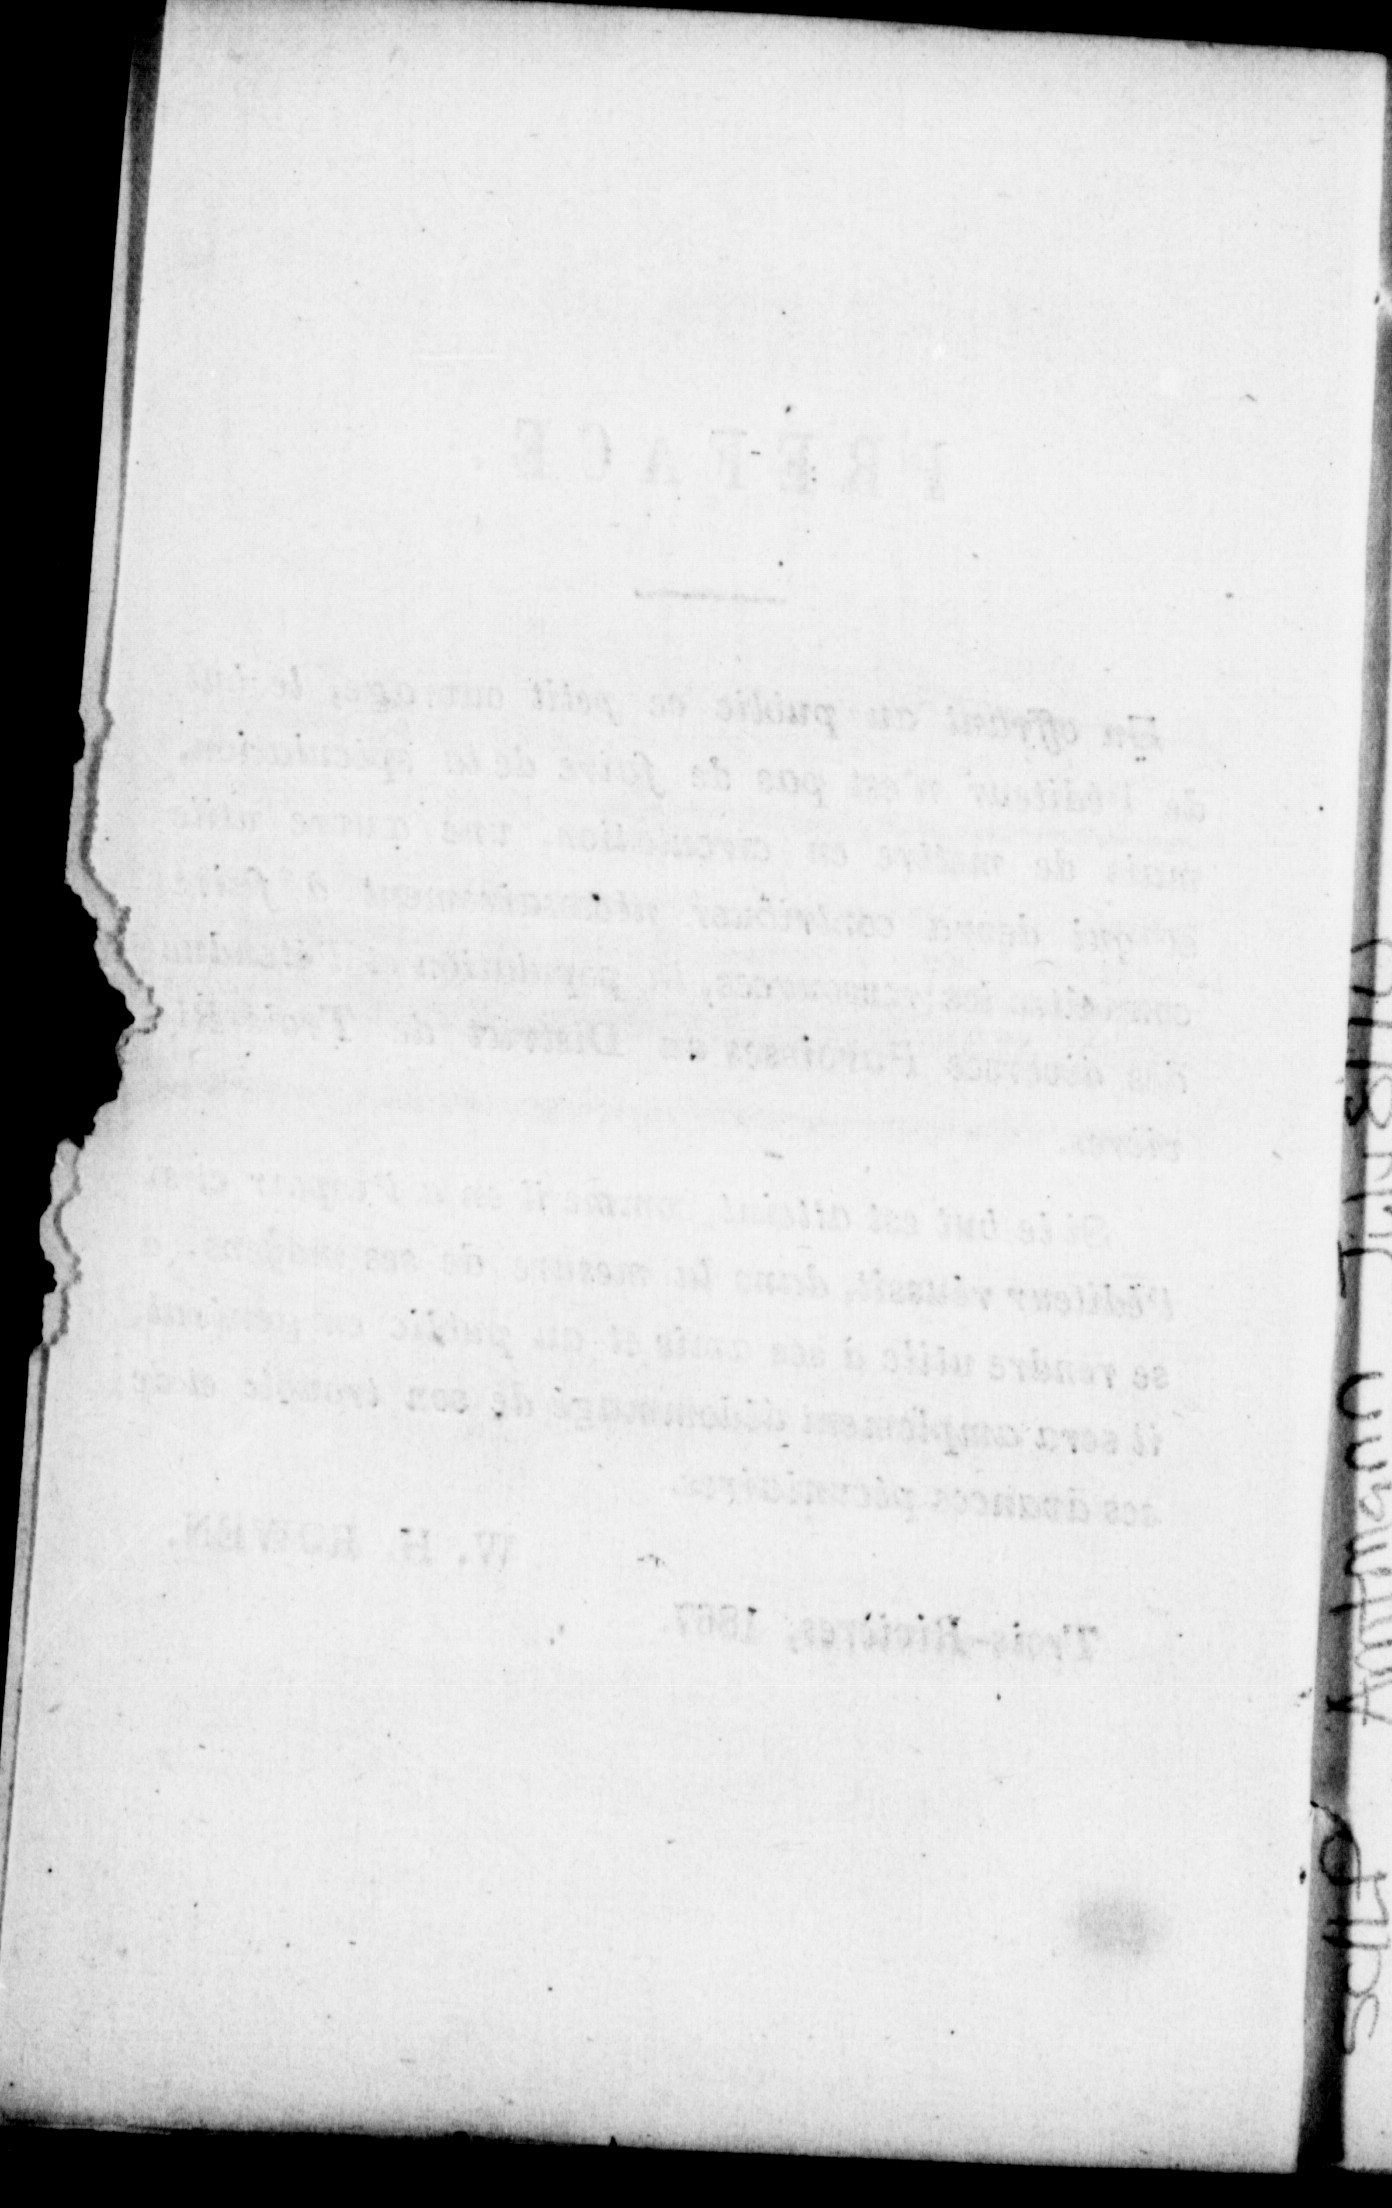 PREFACE.
En offrant au public ce petit ouvrage, le but
de l'éditeur n'est pas de faire de la spéculation,
mais de mettre en circulation une œuvre utile
et qui devra contribuer nécessairement à faire
connaître les ressources, la population et l'étendue
des diverses Paroisses du District de Trois-Ri-
vières.
Si le but est atteint, comme il en a l'espoir et si
l'éditeur réussit, dans la mesure de ses moyens, à
se rendre utile à ses amis et au public en général,
il sera amplement dédommagé de son trouble et de
ses avances pécuniaires.
W. H. ROWEN.
Trois-Rivières, 1867.